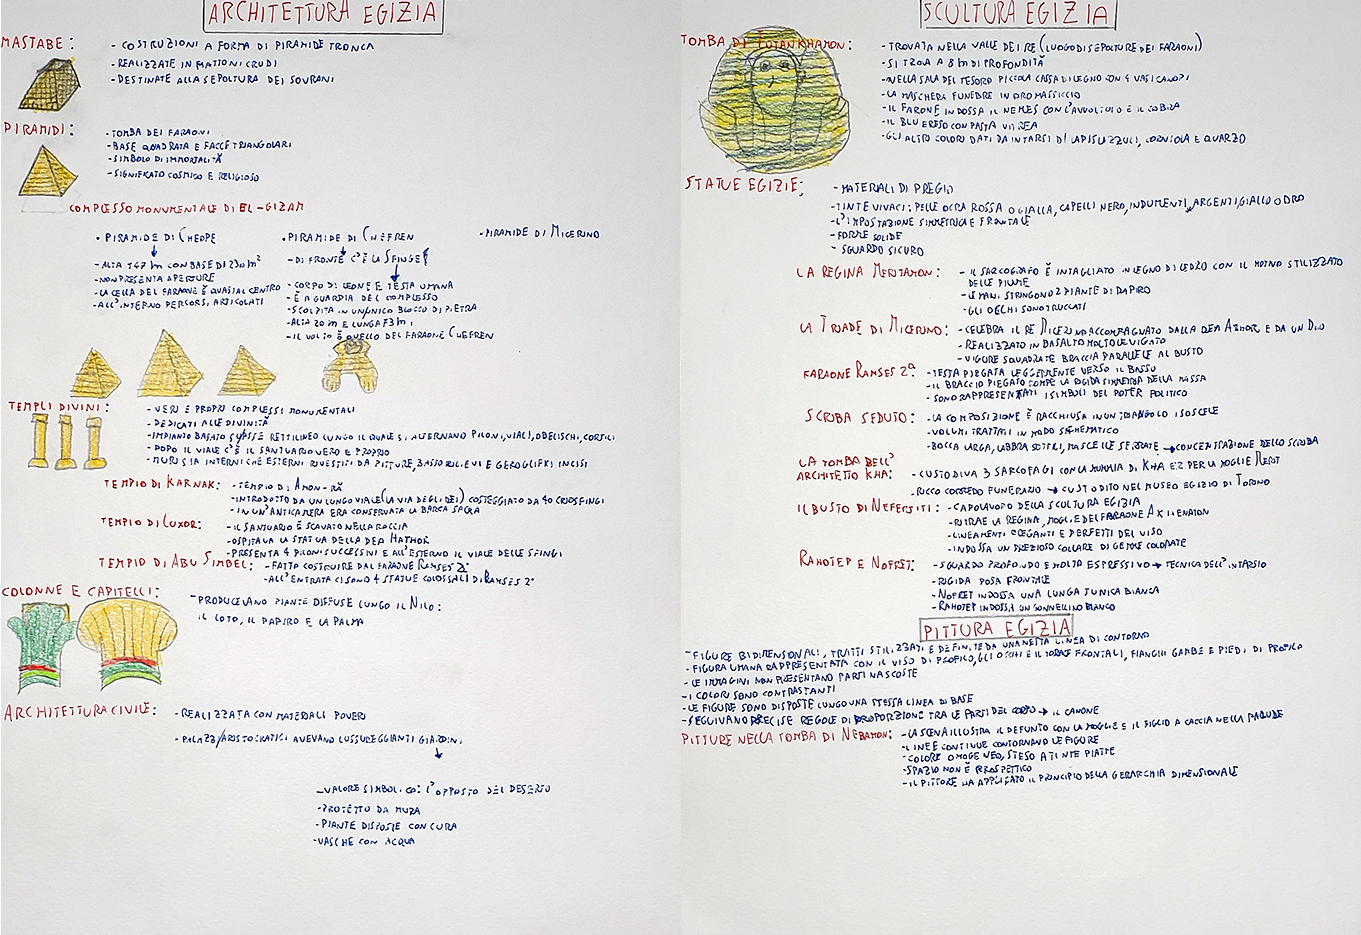 ARCHITETTURA EGIZIA
MASTABE:
- COSTRUZIONI A FORMA DI PIRAMIDE TRONCA
- REALIZZATE IN MATTONI CRUDI
- DESTINATE ALLA SEPOLTURA DEI SOVRANI
PIRAMIDI:
- TOMBA DEI FARAONI
- BASE QUADRATA E FACCE TRIANGOLARI
- SIMBOLO DI IMMORTALITÀ
- SIGNIFICATO COSMICO E RELIGIOSO
COMPLESSO MONUMENTALE DI EL-GIZAH
• PIRAMIDE DI CHEOPE
- ALTA 147 m CON BASE DI 230 m²
- NON PRESENTA APERTURE
- LA CELLA DEL FARAONE È QUASI AL CENTRO
- ALL'INTERNO PERCORSI ARTICOLATI
• PIRAMIDE DI CHEFREN
- DI FRONTE C'È LA SFINGE
- CORPO DI LEONE E TESTA UMANA
- È A GUARDIA DEL COMPLESSO
- SCOLPITA IN UN UNICO BLOCCO DI PIETRA
- ALTA 20 m E LUNGA 73 m
- IL VOLTO È QUELLO DEL FARAONE CHEFREN
- PIRAMIDE DI MICERINO
TEMPLI DIVINI:
- VERI E PROPRI COMPLESSI MONUMENTALI
- DEDICATI ALLE DIVINITÀ
- IMPIANTO BASATO SU ASSE RETTILINEO LUNGO IL QUALE SI ALTERNANO PILONI, VIALI, OBELISCHI, CORTILI
- DOPO IL VIALE C'È IL SANTUARIO VERO E PROPRIO
- MURI SIA INTERNI CHE ESTERNI RIVESTITI DA PITTURE, BASSO RILIEVI E GEROGLIFICI INCISI
TEMPIO DI KARNAK:
- TEMPIO DI AMON-RÀ
- INTRODOTTO DA UN LUNGO VIALE (LA VIA DEGLI DEI) COSTEGGIATO DA 40 CRIOSFINGI
- IN UN'ANTICAMERA ERA CONSERVATA LA BARCA SACRA
TEMPIO DI LUXOR:
- IL SANTUARIO È SCAVATO NELLA ROCCIA
- OSPITAVA LA STATUA DELLA DEA HATHOR
- PRESENTA 4 PILONI SUCCESSIVI E ALL'ESTERNO IL VIALE DELLE SFINGI
TEMPIO DI ABU SIMBEL:
- FATTO COSTRUIRE DAL FARAONE RAMSES 2°
- ALL'ENTRATA CI SONO 4 STATUE COLOSSALI DI RAMSES 2°
COLONNE E CAPITELLI:
- PRODUCEVANO PIANTE DIFFUSE LUNGO IL NILO:
IL LOTO, IL PAPIRO E LA PALMA
ARCHITETTURA CIVILE:
- REALIZZATA CON MATERIALI POVERI
- PALAZZI ARISTOCRATICI AVEVANO LUSSUREGGIANTI GIARDINI
- VALORE SIMBOLICO: L'OPPOSTO DEL DESERTO
- PROTETTO DA MURA
- PIANTE DISPOSTE CON CURA
- VASCHE CON ACQUA
SCULTURA EGIZIA
TOMBA DI TUTANKHAMON:
- TROVATA NELLA VALLE DEI RE (LUOGO DI SEPOLTURE DEI FARAONI)
- SI TROVA A 8 m DI PROFONDITÀ
- NELLA SALA DEL TESORO PICCOLA CASSA DI LEGNO CON 4 VASI CANOPI
- LA MASCHERA FUNEBRE IN ORO MASSICCIO
- IL FARONE INDOSSA IL NEMES CON L'AVVOLTOIO E IL COBRA
- IL BLU È RESO CON PASTA VITREA
- GLI ALTRI COLORI DATI DA INTARSI DI LAPISLAZZULI, CORNIOLA E QUARZO
STATUE EGIZIE:
- MATERIALI DI PREGIO
- TINTE VIVACI: PELLE OCRA ROSSA O GIALLA, CAPELLI NERO, INDUMENTI ARGENTI, GIALLO O ORO
- L'IMPOSTAZIONE SIMMETRICA E FRONTALE
- FORME SOLIDE
- SGUARDO SICURO
LA REGINA MERITAMON:
- IL SARCOFAGO È INTAGLIATO IN LEGNO DI CEDRO CON IL MOTIVO STILIZZATO
DELLE PIUME
- LE MANI STRINGONO 2 PIANTE DI PAPIRO
- GLI OCCHI SONO TRUCCATI
LA TRIADE DI MICERINO:
- CELEBRA IL RE MICERINO ACCOMPAGNATO DALLA DEA ATHOR E DA UN DIO
- REALIZZATO IN BASALTO MOLTO LEVIGATO
- FIGURE SQUADRATE BRACCIA PARALLELE AL BUSTO
FARAONE RAMSES 2°:
- TESTA PIEGATA LEGGERMENTE VERSO IL BASSO
- IL BRACCIO PIEGATO ROMPE LA RIGIDA SIMMETRIA DELLA MASSA
- SONO RAPPRESENTATI I SIMBOLI DEL POTER POLITICO
SCRIBA SEDUTO:
- LA COMPOSIZIONE È RACCHIUSA IN UN TRIANGOLO ISOSCELE
- VOLUMI TRATTATI IN MODO SCHEMATICO
- BOCCA LARGA, LABBRA SOTTILI, MASCELLE SERRATE → CONCENTRAZIONE DELLO SCRIBA
LA TOMBA DELL'
ARCHITETTO KHA:
- CUSTODIVA 3 SARCOFAGI CON LA MUMMIA DI KHA E 2 PER LA MOGLIE MERIT
- RICCO CORREDO FUNERARIO → CUSTODITO NEL MUSEO EGIZIO DI TORINO
IL BUSTO DI NEFERTITI:
- CAPOLAVORO DELLA SCULTURA EGIZIA
- RITRAE LA REGINA, MOGLIE DEL FARAONE AKHENATON
- LINEAMENTI ELEGANTI E PERFETTI DEL VISO
- INDOSSA UN PREZIOSO COLLARE DI GEMME COLORATE
RAHOTEP E NOFRET:
- SGUARDO PROFONDO E MOLTO ESPRESSIVO → TECNICA DELL'INTARSIO
- RIGIDA POSA FRONTALE
- NOFRET INDOSSA UNA LUNGA TUNICA BIANCA
- RAHOTEP INDOSSA UN GONNELLINO BIANCO
PITTURA EGIZIA
- FIGURE BIDIMENSIONALI, TRATTI STILIZZATI E DEFINITE DA UNA NETTA LINEA DI CONTORNO
- FIGURA UMANA RAPPRESENTATA CON IL VISO DI PROFILO, GLI OCCHI E IL TORAE FRONTALI, FIANCHI GAMBE E PIEDI DI PROFILO
- LE IMMAGINI NON PRESENTANO PARTI NASCOSTE
- I COLORI SONO CONTRASTANTI
- LE FIGURE SONO DISPOSTE LUNGO UNA STESSA LINEA DI BASE
- SEGUIVANO PRECISE REGOLE DI PROPORZIONE TRA LE PARTI DEL CORPO → IL CANONE
PITTURE NELLA TOMBA DI NEBAMON:
- LA SCENA ILLUSTRA IL DEFUNTO CON LA MOGLIE E IL FIGLIO A CACCIA NELLA PALUDE
- LINEE CONTINUE CONTORNANO LE FIGURE
- COLORE OMOGENEO, STESO A TINTE PIATTE
- SPAZIO NON È PROSPETTICO
- IL PITTORE HA APPLICATO IL PRINCIPIO DELLA GERARCHIA DIMENSIONALE